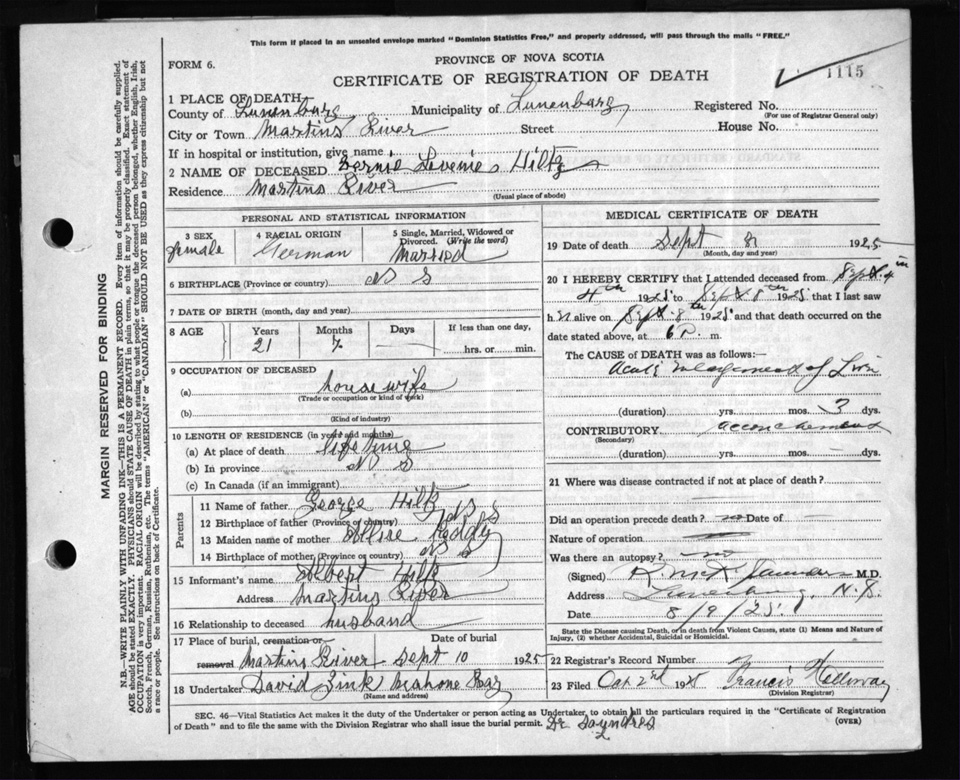 This form if placed in an unsealed envelope marked "Dominion Statistics Free," and properly addressed, will pass through the mails "FREE."
FORM 6.
PROVINCE OF NOVA SCOTIA
CERTIFICATE OF REGISTRATION OF DEATH
1115
1 PLACE OF DEATH
County of Lunenburg Municipality of Lunenburg Registered No.
(For use of Registrar General only)
City or Town Martins River Street House No.
If in hospital or institution, give name
2 NAME OF DECEASED Hiltz
Residence Martins River
(Usual place of abode)
PERSONAL AND STATISTICAL INFORMATION
3 SEX 4 RACIAL ORIGIN 5 Single, Married, Widowed or Divorced. (Write the word)
female German Married
6 BIRTHPLACE (Province or country) N S
7 DATE OF BIRTH (month, day and year)
8 AGE Years Months Days If less than one day,
21 7 — hrs. or min.
9 OCCUPATION OF DECEASED
(a) housewife
(Trade or occupation or kind of work)
(b)
(Kind of industry)
10 LENGTH OF RESIDENCE (in years and months)
(a) At place of death life time
(b) In province N S
(c) In Canada (if an immigrant)
Parents
11 Name of father George Hiltz
12 Birthplace of father (Province or country) N S
13 Maiden name of mother
14 Birthplace of mother (Province or country) N S
15 Informant's name Albert Hiltz
Address Martins River
16 Relationship to deceased husband
17 Place of burial, cremation or removal Date of burial
Martins River Sept 10 1925
18 Undertaker David Zink Mahone Bay
(Name and address)
MEDICAL CERTIFICATE OF DEATH
19 Date of death Sept 8 1925
(Month, day and year)
20 I HEREBY CERTIFY that I attended deceased from Sept 4
4th 1925 to Sept 8th 1925 that I last saw
h alive on Sept 8th 1925 and that death occurred on the
date stated above, at 6 P m.
The CAUSE OF DEATH was as follows:
Acute enlargement of Liver
(duration) yrs. mos. 3 dys.
CONTRIBUTORY accouchement
(Secondary)
(duration) yrs. mos. — dys.
21 Where was disease contracted if not at place of death?
Did an operation precede death? no Date of —
Nature of operation —
Was there an autopsy? no
(Signed) Saunders M.D.
Address Lunenburg, N.S.
Date 8/9/25
State the Disease causing Death, or in death from Violent Causes, state (1) Means and Nature of Injury, (2) whether Accidental, Suicidal or Homicidal.
22 Registrar's Record Number
23 Filed Oct 2nd 1925 Francis
(Division Registrar)
SEC. 46—Vital Statistics Act makes it the duty of the Undertaker or person acting as Undertaker, to obtain all the particulars required in the "Certificate of Registration
of Death" and to file the same with the Division Registrar who shall issue the burial permit. Dr Saunders (OVER)
MARGIN RESERVED FOR BINDING
N.B.—WRITE PLAINLY WITH UNFADING INK—THIS IS A PERMANENT RECORD. Every item of information should be carefully supplied.
AGE should be stated EXACTLY. PHYSICIANS should STATE CAUSE OF DEATH in plain terms, so that it may be properly classified. Exact statement of
OCCUPATION is very important. RACIAL ORIGIN will be described by stating to what people or tongue the deceased person belonged, whether English, Irish,
Scotch, French, German, Russian, Ruthenian, etc. The terms "AMERICAN" or "CANADIAN" SHOULD NOT BE USED as they express citizenship but not
a race or people. See instructions on back of Certificate.